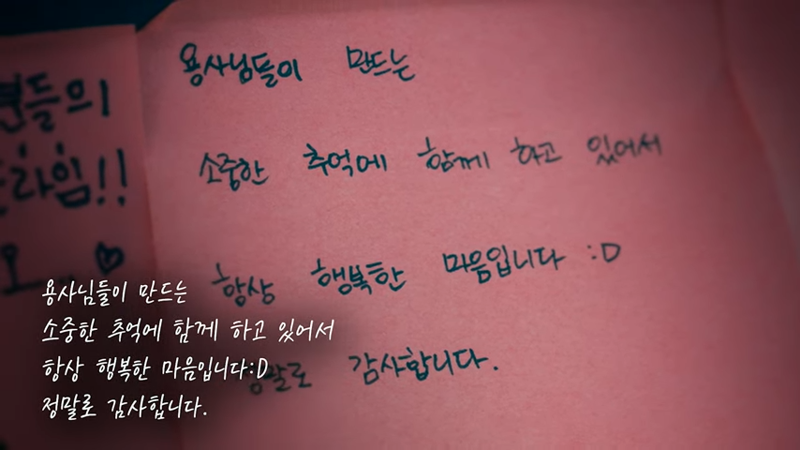 용사님들이 만드는
소중한 추억에 함께 하고 있어서
항상 행복한 마음입니다 :D
정말로 감사합니다.
들의
라임!!
용사님들이 만드는
소중한 추억에 함께 하고 있어서
항상 행복한 마음입니다:D
정말로 감사합니다.